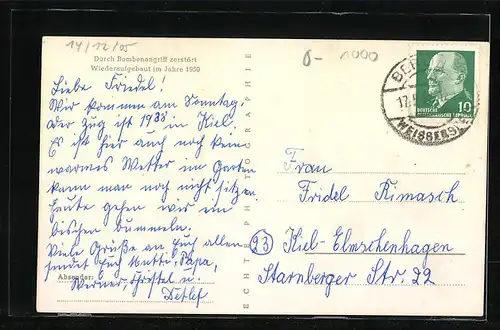 14/12/05
Durch Bombenangriff zerstört
Wiederaufgebaut im Jahre 1950
0- 1000
Liebe Friedel!
Wir kommen am Sonntag,
der Zug ist 1933 in Kiel.
Es ist hier auch noch kein
warmes Wetter im Garten
kann man noch nicht sitzen.
Heute gehen wir ein
bischen bummeln.
Viele Grüße an Euch allen
sendet Euch Mutti, Papa,
Absender:
Werner, Christel u.
Detlef
ECHTE PHOTOGRAPHIE
DEUTSCHE
DEMOKRATISCHE REPUBLIK
10
WEISSENSEE
Frau
Fridel Kimasch
23 Kiel-Elmschenhagen
Starnberger Str. 22